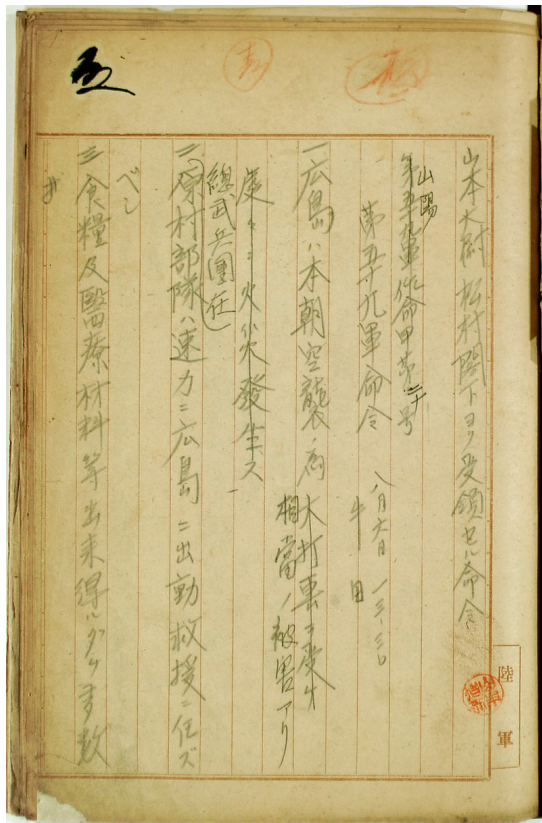 山本大尉 松村閣下ヨリ受領セル命令
山陽
第五九軍作命甲第二十号
第五十九軍命令 八月六日 一三、三〇
牛田
一広島ハ本朝空襲ノ為大打撃ヲ受ケ
相當ノ被害アリ
處々ニ火災發生ス
總武兵團
二原村部隊ハ速カニ広島ニ出動救援ニ任ズ
ベシ
三食糧及醫療材料等出来得ル多数
陸軍